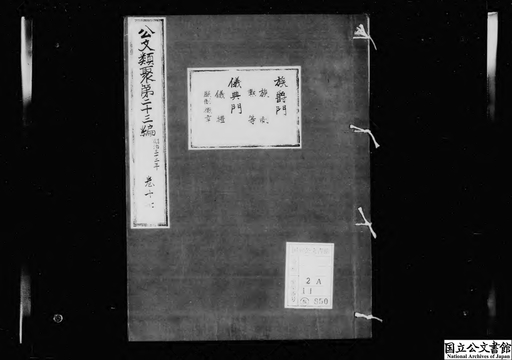 公文類聚第二十三編
明治三十二年
卷十
族爵門
族制
勲等
儀典門
儀禮
2A
11
850
国立公文書館
National Archives of Japan